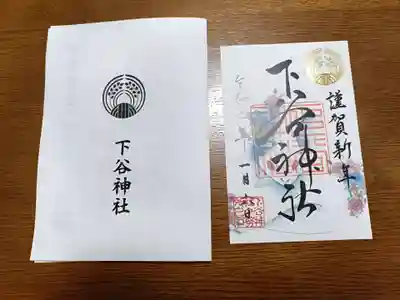 下谷神社
謹賀新年
下谷神社
一月
日